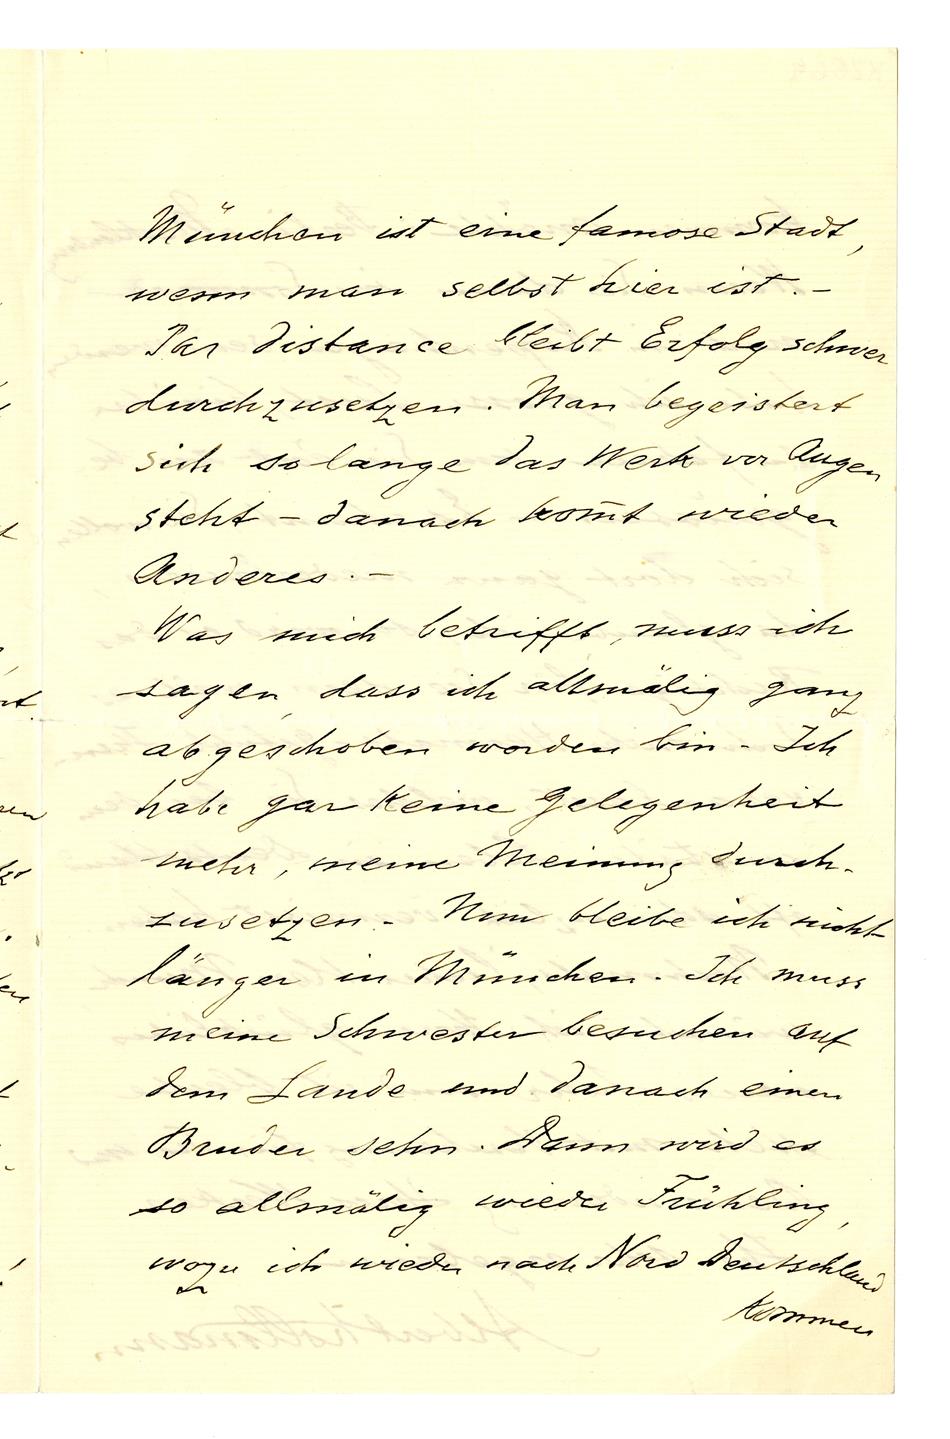 München ist eine famose Stadt,
wenn man selbst hier ist. –
Par distance bleibt Erfolg schwer
durchzusetzen. Man begeistert
sich so lange das Werk vor Augen
steht – danach kom̅t wieder
Anderes. –
Was mich betrifft, muss ich
sagen, dass ich allmälig ganz
abgeschoben worden bin – Ich
habe gar keine Gelegenheit
mehr, meine Meinung durch-
zusetzen. – Nun bleibe ich nicht
länger in München. Ich muss
meine Schwester besuchen auf
dem Lande und danach einen
Bruder sehn. Dann wird es
so allmälig wieder Frühling,
wozu ich wieder nach Nord Deutschland
kommen